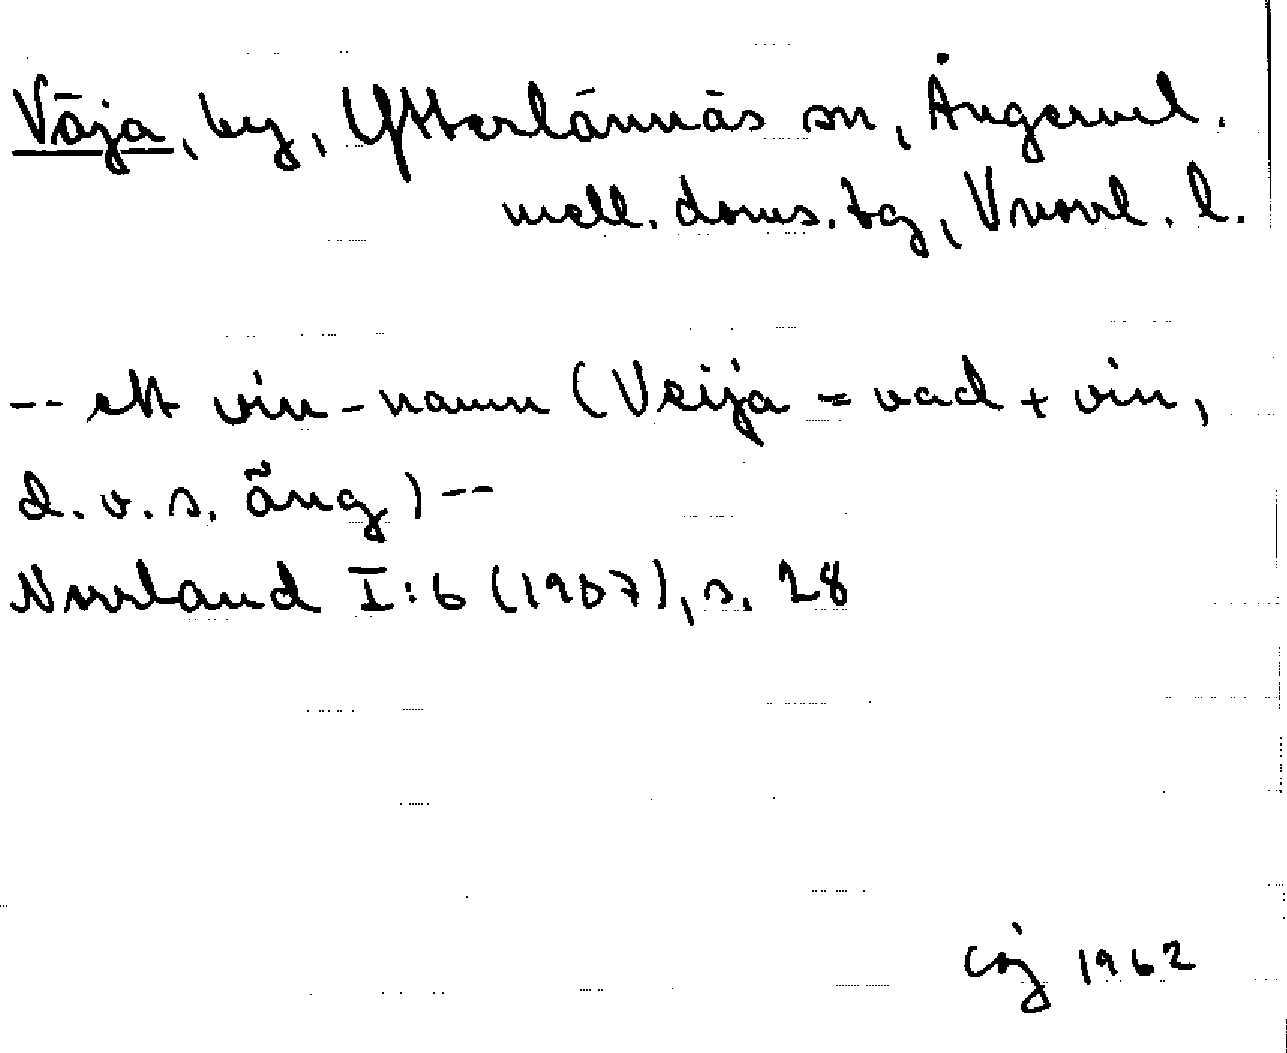 Väja, by, Ytterlännäs sn, Ångerml.
mell. doms. tg, Vnorrl. l.
-- ett vin-namn (Veija = vad + vin,
d.v.s. äng) --
Norrland I:6 (1907), s. 28
1962